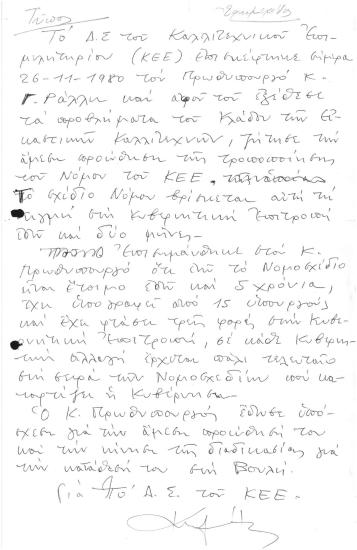 Τύπος Εφημερίδες
Το Δ.Σ του Καλλιτεχνικού Επι-
μελητηρίου (ΚΕΕ) επισκέφτηκε σήμερα
26-11-1980 τον Πρωθυπουργό κ.
Γ. Ράλλη και αφού του εξέθεσε
τα προβλήματα του Κλάδου των Ει-
καστικών Καλλιτεχνών, ζήτησε την
άμεση προώθηση της τροποποίησης
του Νόμου του ΚΕΕ.
Το σχέδιο Νόμου βρίσκεται αυτή τη
στιγμή στην Κυβερνητική Επιτροπή
εδώ και δύο μήνες.
Επισημάνθηκε στον κ.
Πρωθυπουργό ότι ενώ το Νομοσχέδιο
είναι έτοιμο εδώ και 5 χρόνια,
έχει υπογραφεί από 15 υπουργούς
και έχει φτάσει τρεις φορές στην Κυβερ-
νητική Επιτροπή, σε κάθε Κυβερνη-
τική αλλαγή έρχεται πάλι τελευταίο
στη σειρά των Νομοσχεδίων που κα-
ταρτίζει η Κυβέρνηση.
Ο κ. Πρωθυπουργός έδωσε υπόσ-
χεση για την άμεση προώθησή του
και την κίνηση της διαδικασίας για
την κατάθεσή του στη Βουλή.
Για το Δ.Σ. του ΚΕΕ.